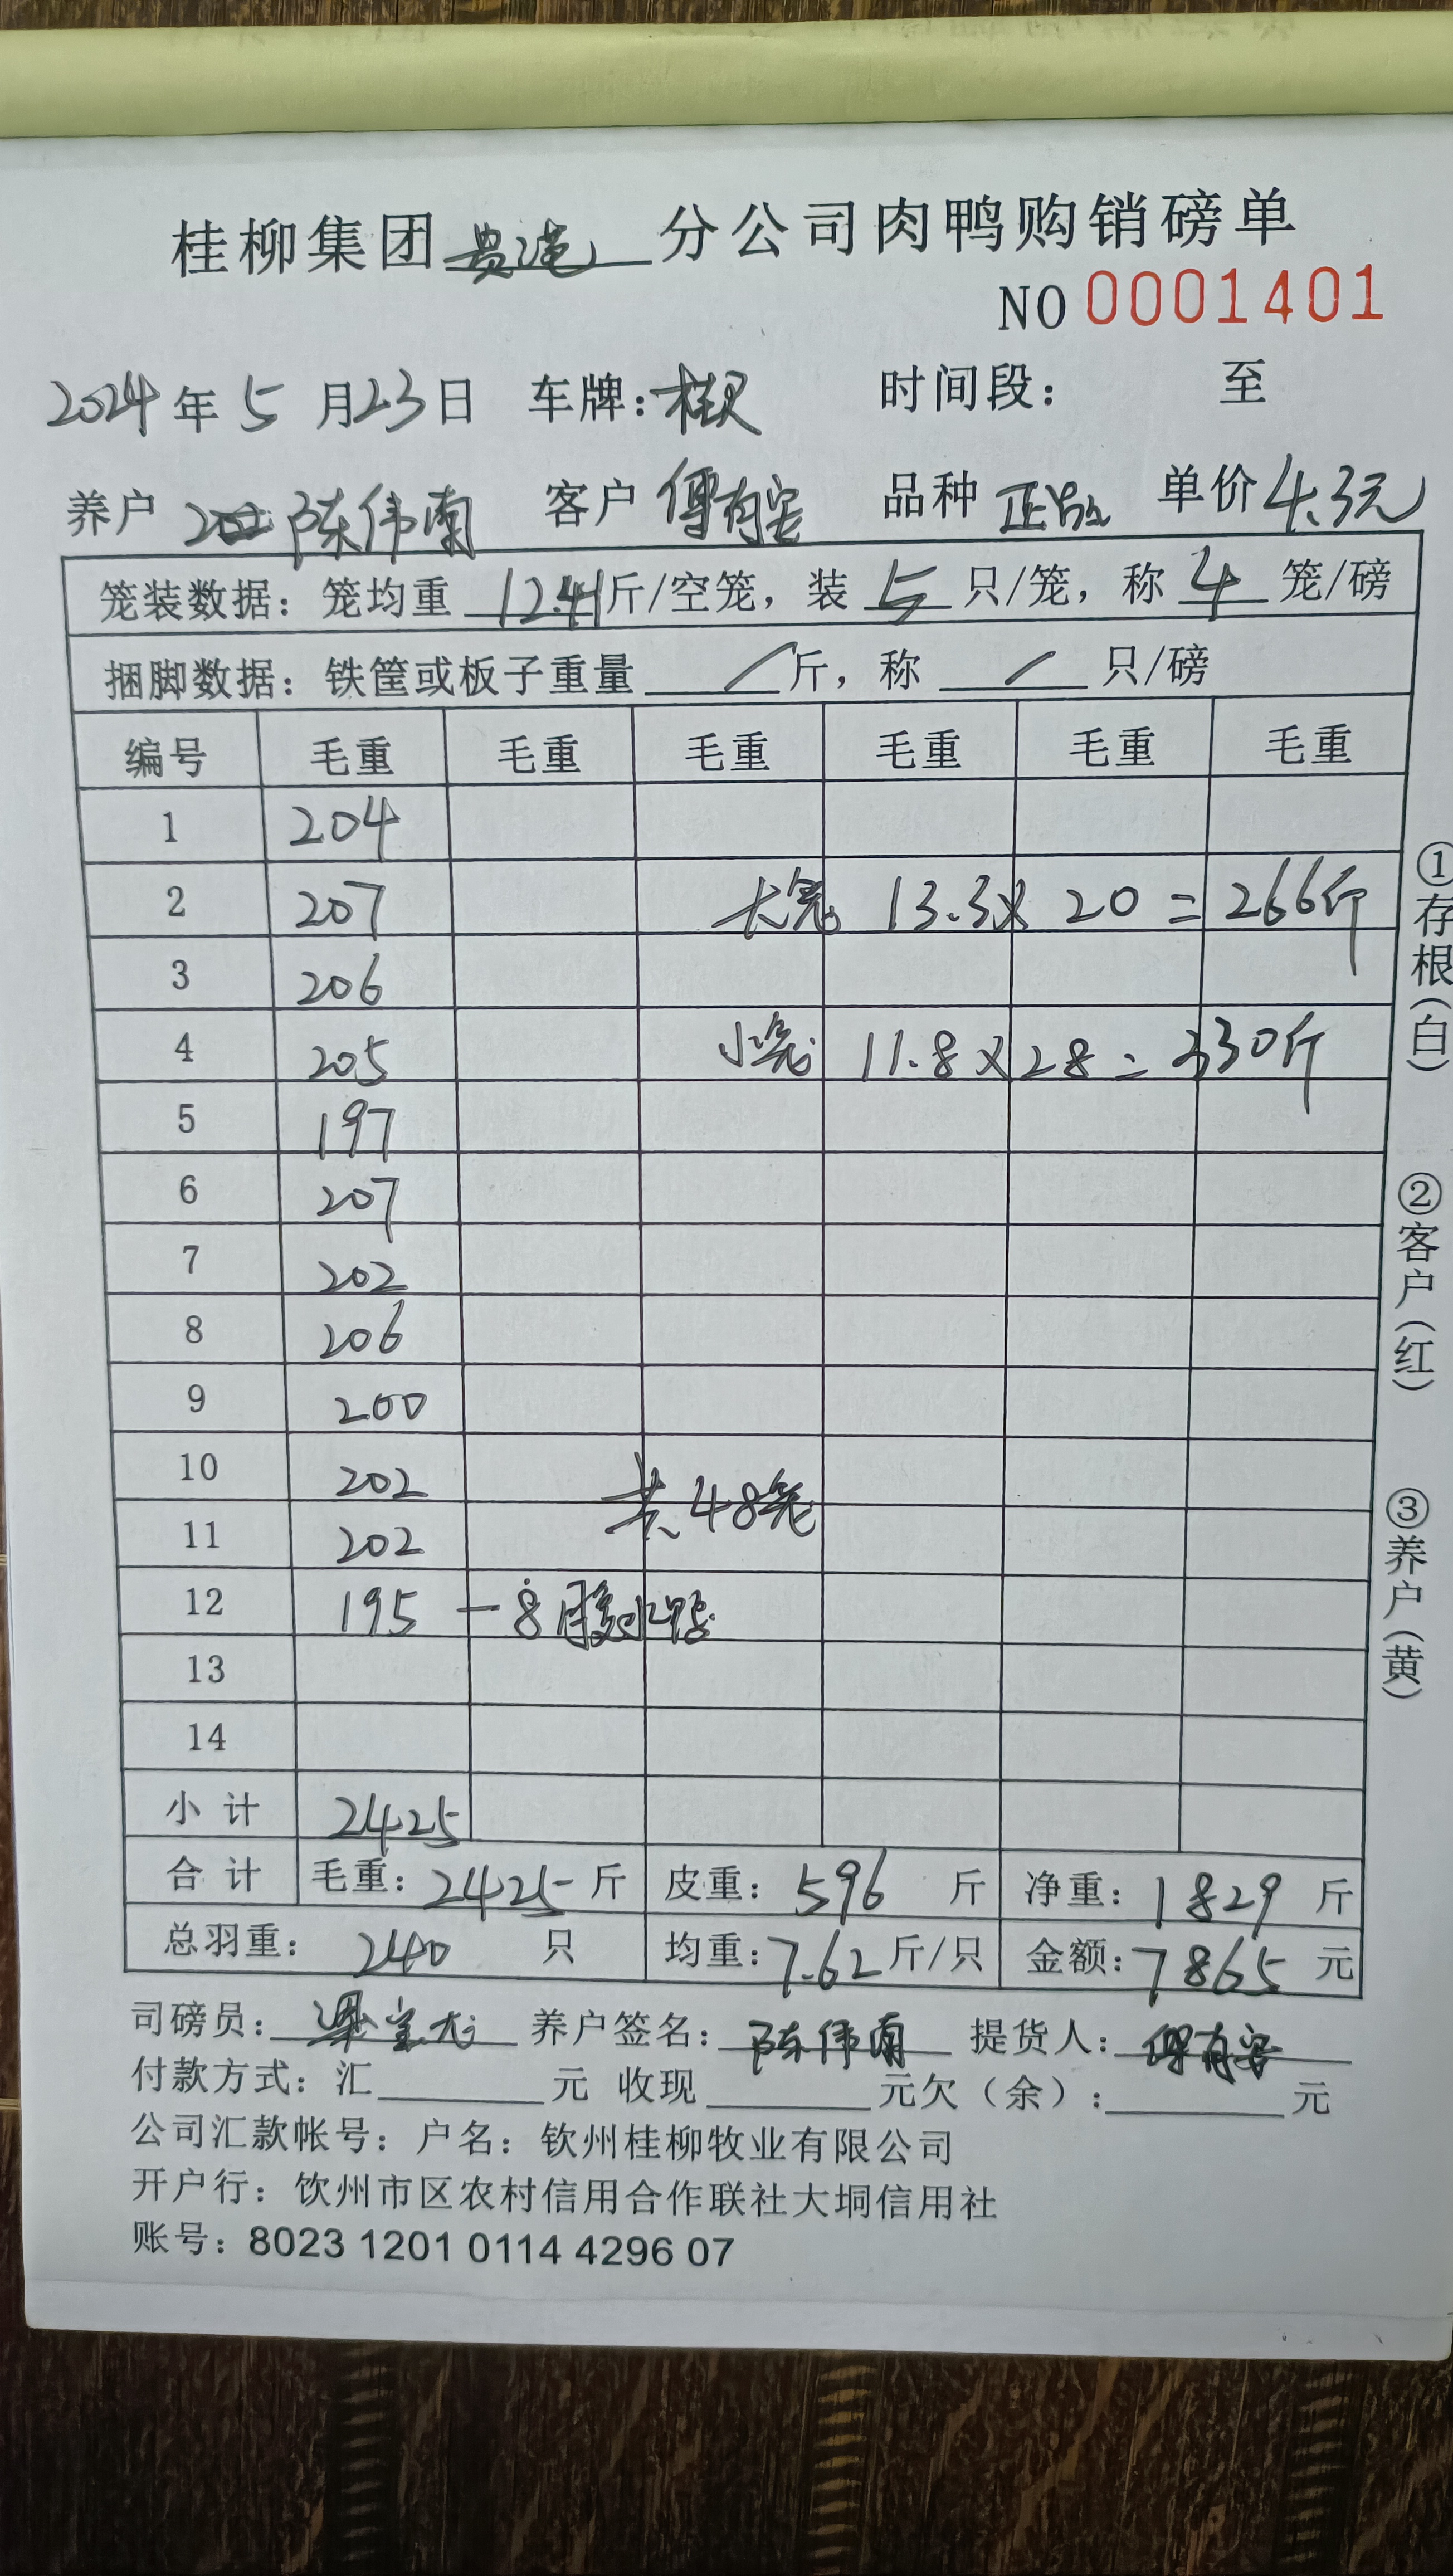 桂柳集团贵港分公司肉鸭购销磅单
NO 0001401
2024年5月23日 车牌: 时间段: 至
养户 陈伟南 客户 傅有安 品种 正品 单价4.3元
笼装数据: 笼均重 12.41斤/空笼, 装 5 只/笼, 称 4 笼/磅
捆脚数据: 铁筐或板子重量 / 斤, 称 / 只/磅
编号 毛重 毛重 毛重 毛重 毛重 毛重
1 204
2 207 大笼 13.3×20=266斤
3 206
4 205 小笼 11.8×28=330斤
5 197
6 207
7 202
8 206
9 200
10 202 共48笼
11 202
12 195 -8 水鸭
13
14
小计 2425
合计 毛重: 2425斤 皮重: 596 斤 净重: 1829 斤
总羽重: 240 只 均重: 7.62斤/只 金额: 7865 元
司磅员: 梁 养户签名: 陈伟南 提货人: 傅有安
付款方式: 汇 元 收现 元欠(余): 元
公司汇款帐号: 户名: 钦州桂柳牧业有限公司
开户行: 饮州市区农村信用合作联社大垌信用社
账号: 8023 1201 0114 4296 07
①存根(白)
②客户(红)
③养户(黄)